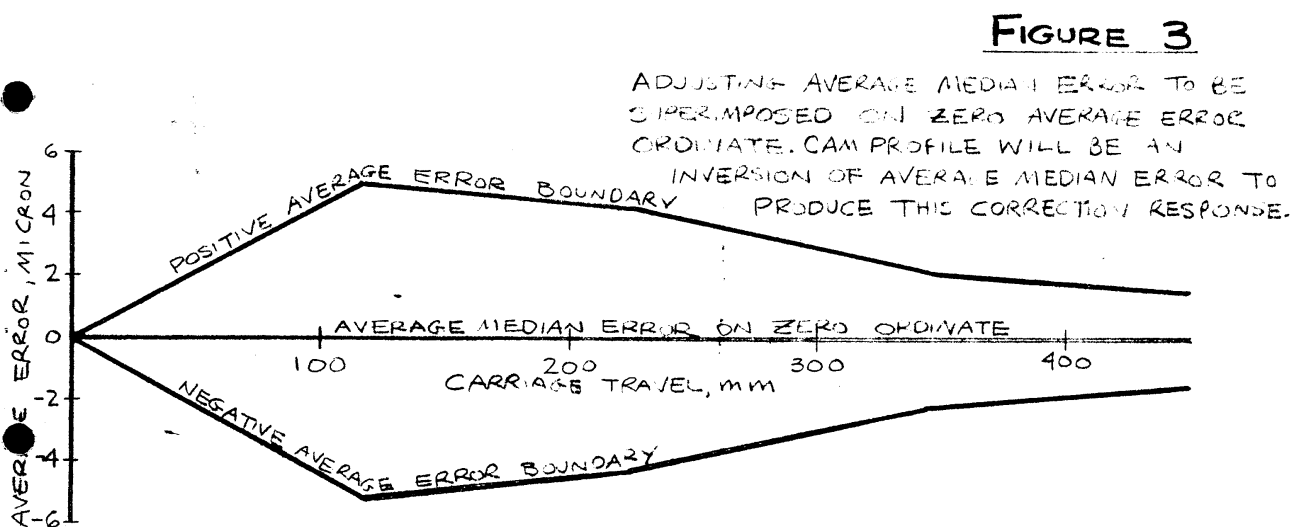 FIGURE 3
ADJUSTING AVERAGE MEDIAN ERROR TO BE
SUPERIMPOSED ON ZERO AVERAGE ERROR
ORDINATE. CAM PROFILE WILL BE AN
INVERSION OF AVERAGE MEDIAN ERROR TO
PRODUCE THIS CORRECTION RESPONSE.
AVERAGE ERROR, MICRON
6
4
2
0
-2
-4
-6
POSITIVE AVERAGE ERROR BOUNDARY
AVERAGE MEDIAN ERROR ON ZERO ORDINATE
100 200 300 400
CARRIAGE TRAVEL, mm
NEGATIVE AVERAGE ERROR BOUNDARY